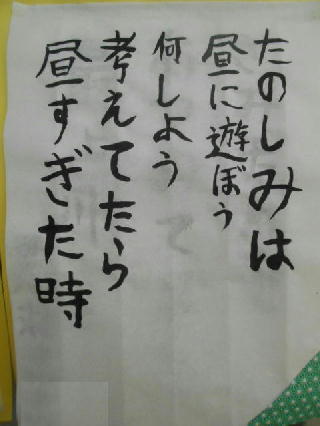 たのしみは
昼に遊ぼう
何しよう
考えてたら
昼すぎた時